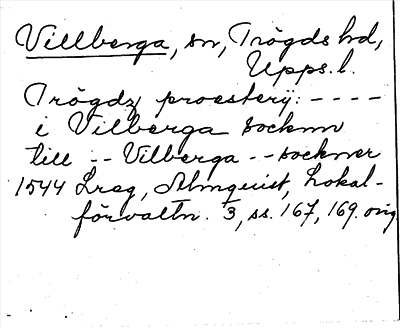 Villberga, sn, Trögds hd,
Upps. l.
Trögdz proesterij: - - - -
i Vilberga socknn
till - - Vilberga - - sockner
1544 Lreg, Almquist, Lokal-
förvaltn. 3, ss. 167, 169. orig